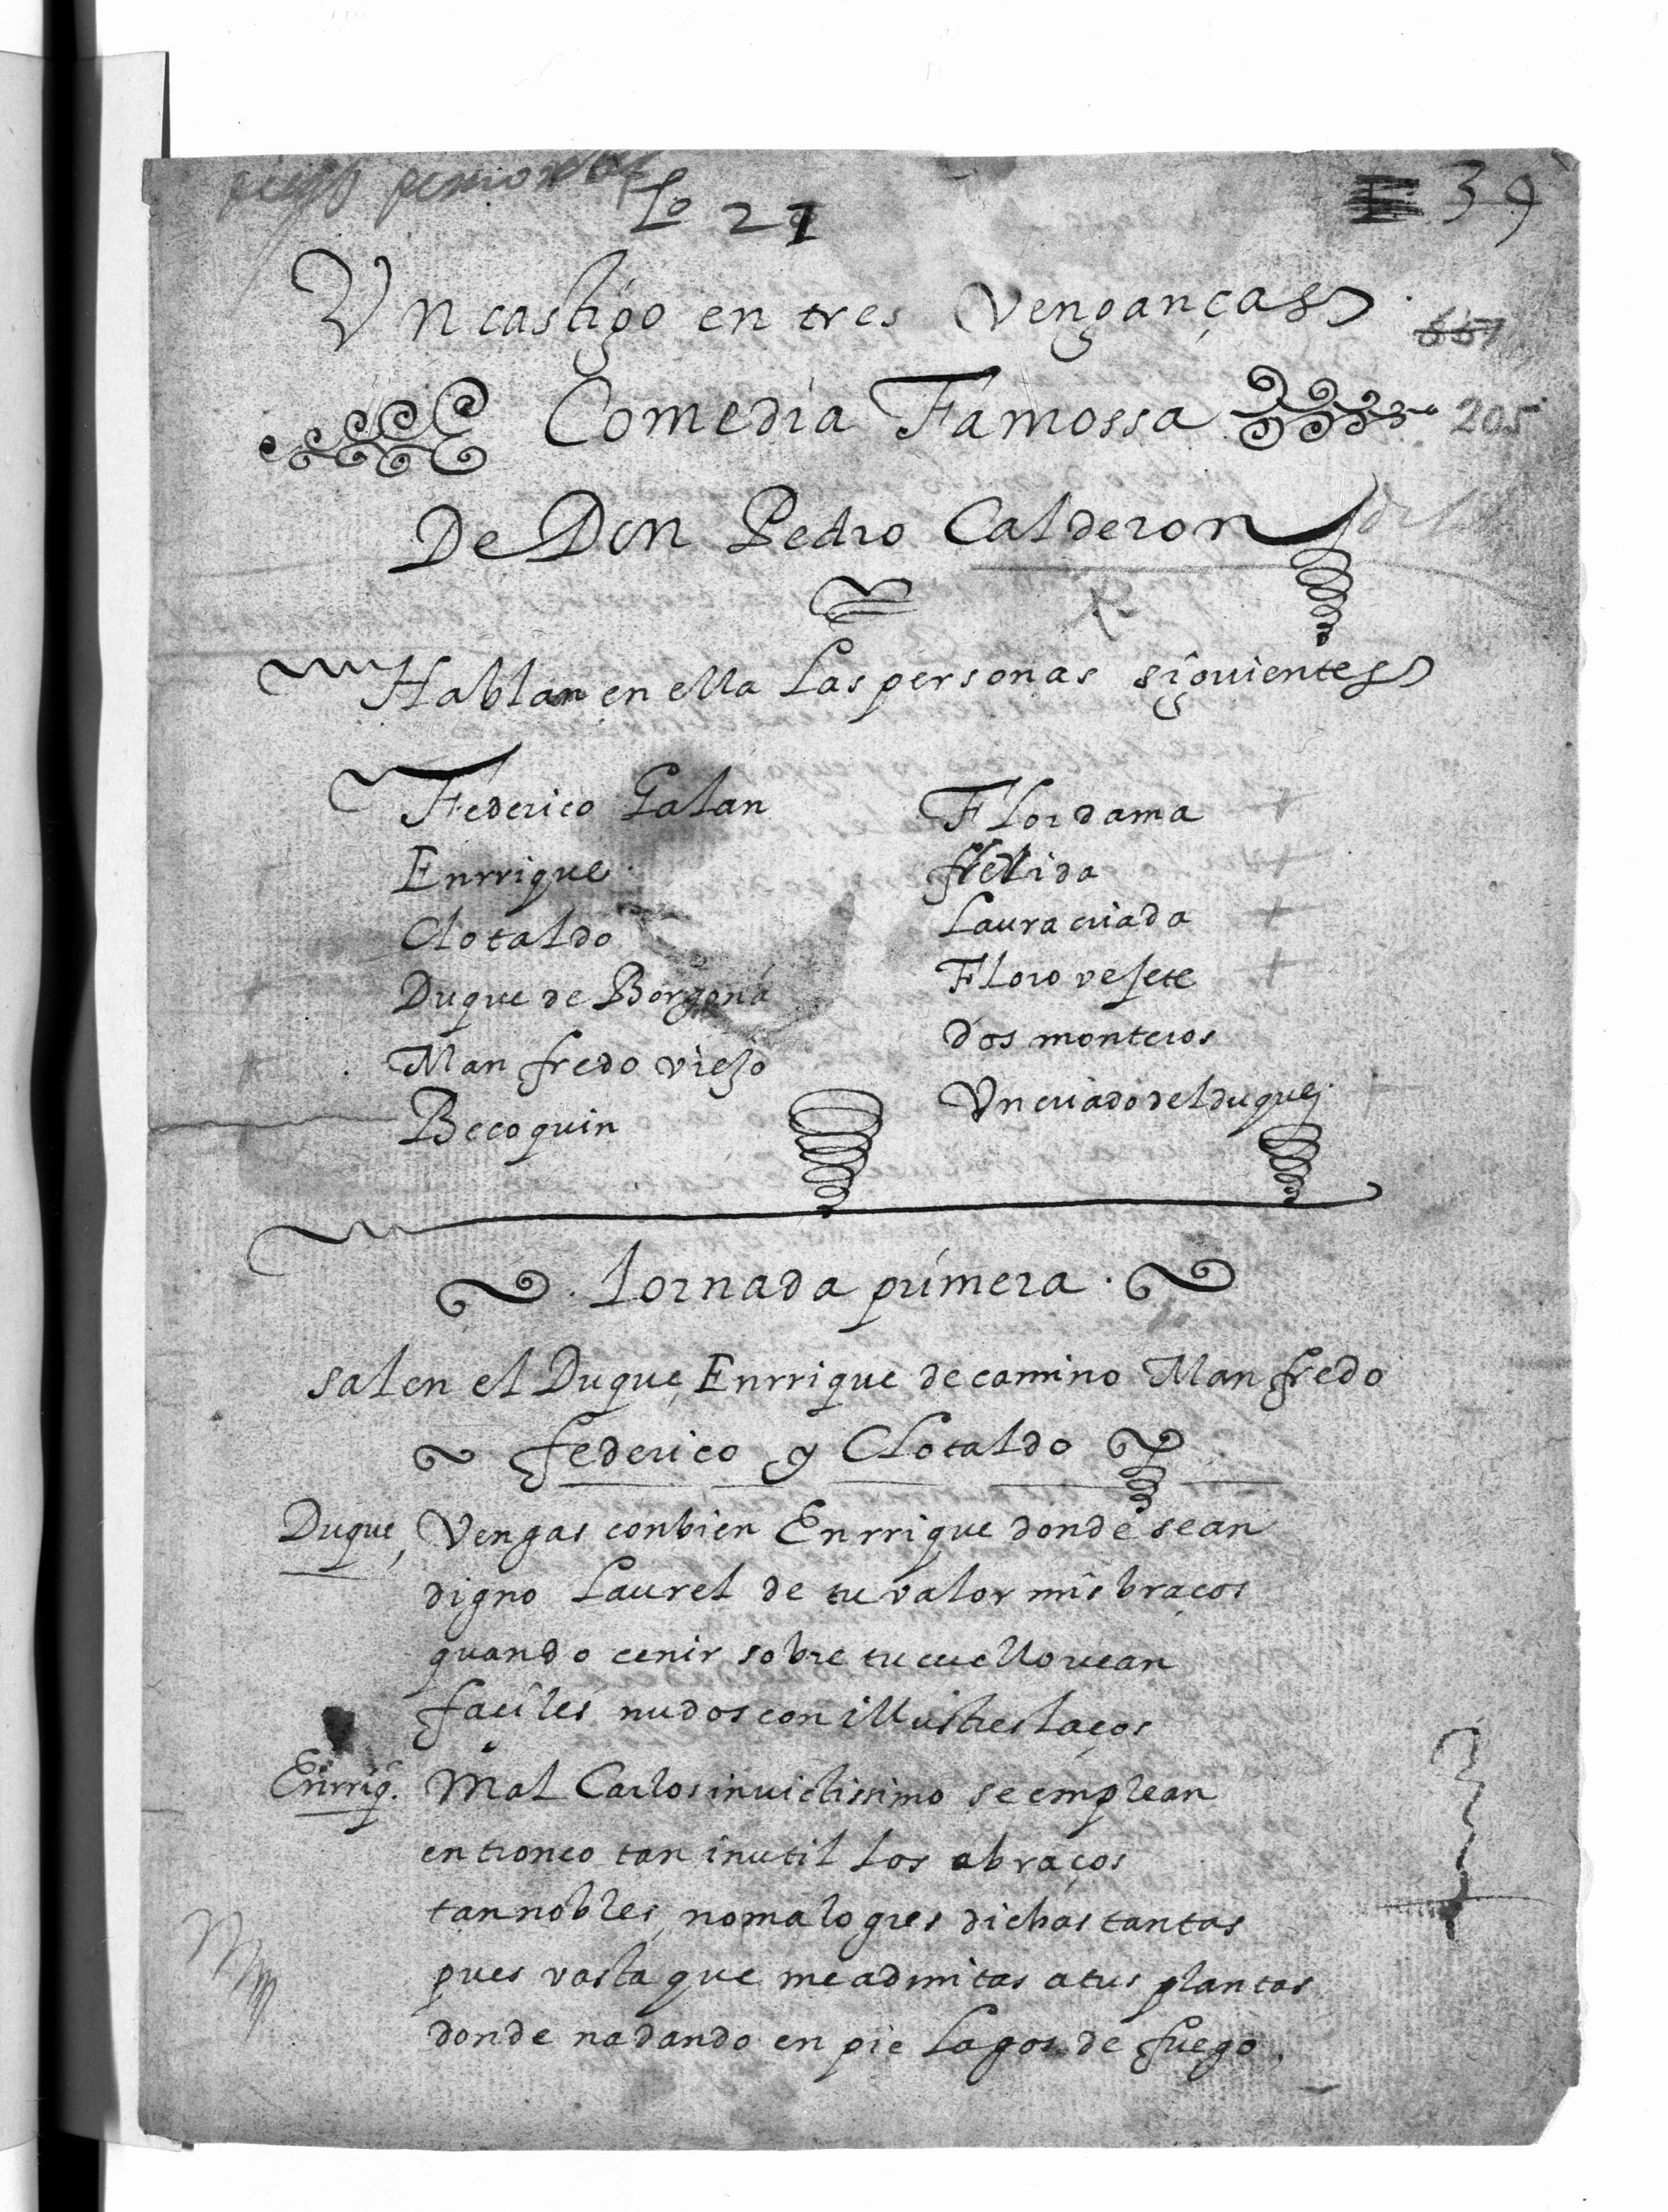 Lo 27
39
Un castigo en tres Venganças
557
Comedia Famossa
205
De Don Pedro Calderon
Hablan en ella Las personas siguientes
Federico Galan
Enrrique
Clotaldo
Duque de Borgona
Manfredo viejo
Becoquin
Flor dama
Laura criada
Floro vejete
dos monteros
Un criado del duque
Jornada primera
salen el Duque, Enrrique de camino Manfredo
federico y Clotaldo
Duque, Vengas con bien Enrrique donde sean
digno Laurel de tu valor mis braços
quando cenir sobre tu cuello vean
faciles nudos con illustres laços
Enrriq. Mal Carlos invictissimo se emplean
en tronco tan inutil los abraços
tan nobles, no malogres dichas tantas
pues vasta que me admitas a tus plantas
donde nadando en pielagos de fuego,